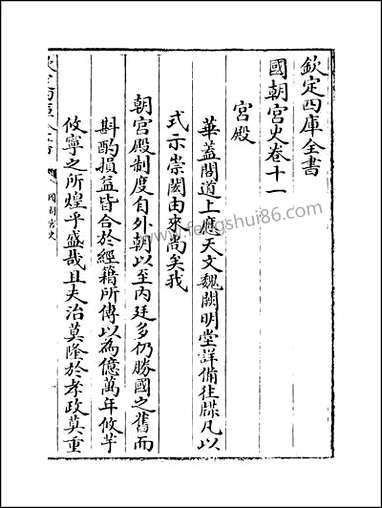 欽定四庫全書
國朝宮史卷十一
宮殿
華蓋閣道上應天文魏闕明堂詳備往牒凡以
式示崇閎由來尚矣我
朝宮殿制度自外朝以至內廷多仍勝國之舊而
斟酌損益皆合於經籍所傳以為億萬年攸芋
攸寧之所煌乎盛哉且夫治莫隆於孝政莫重
國朝宮史
www.fengshui86.com